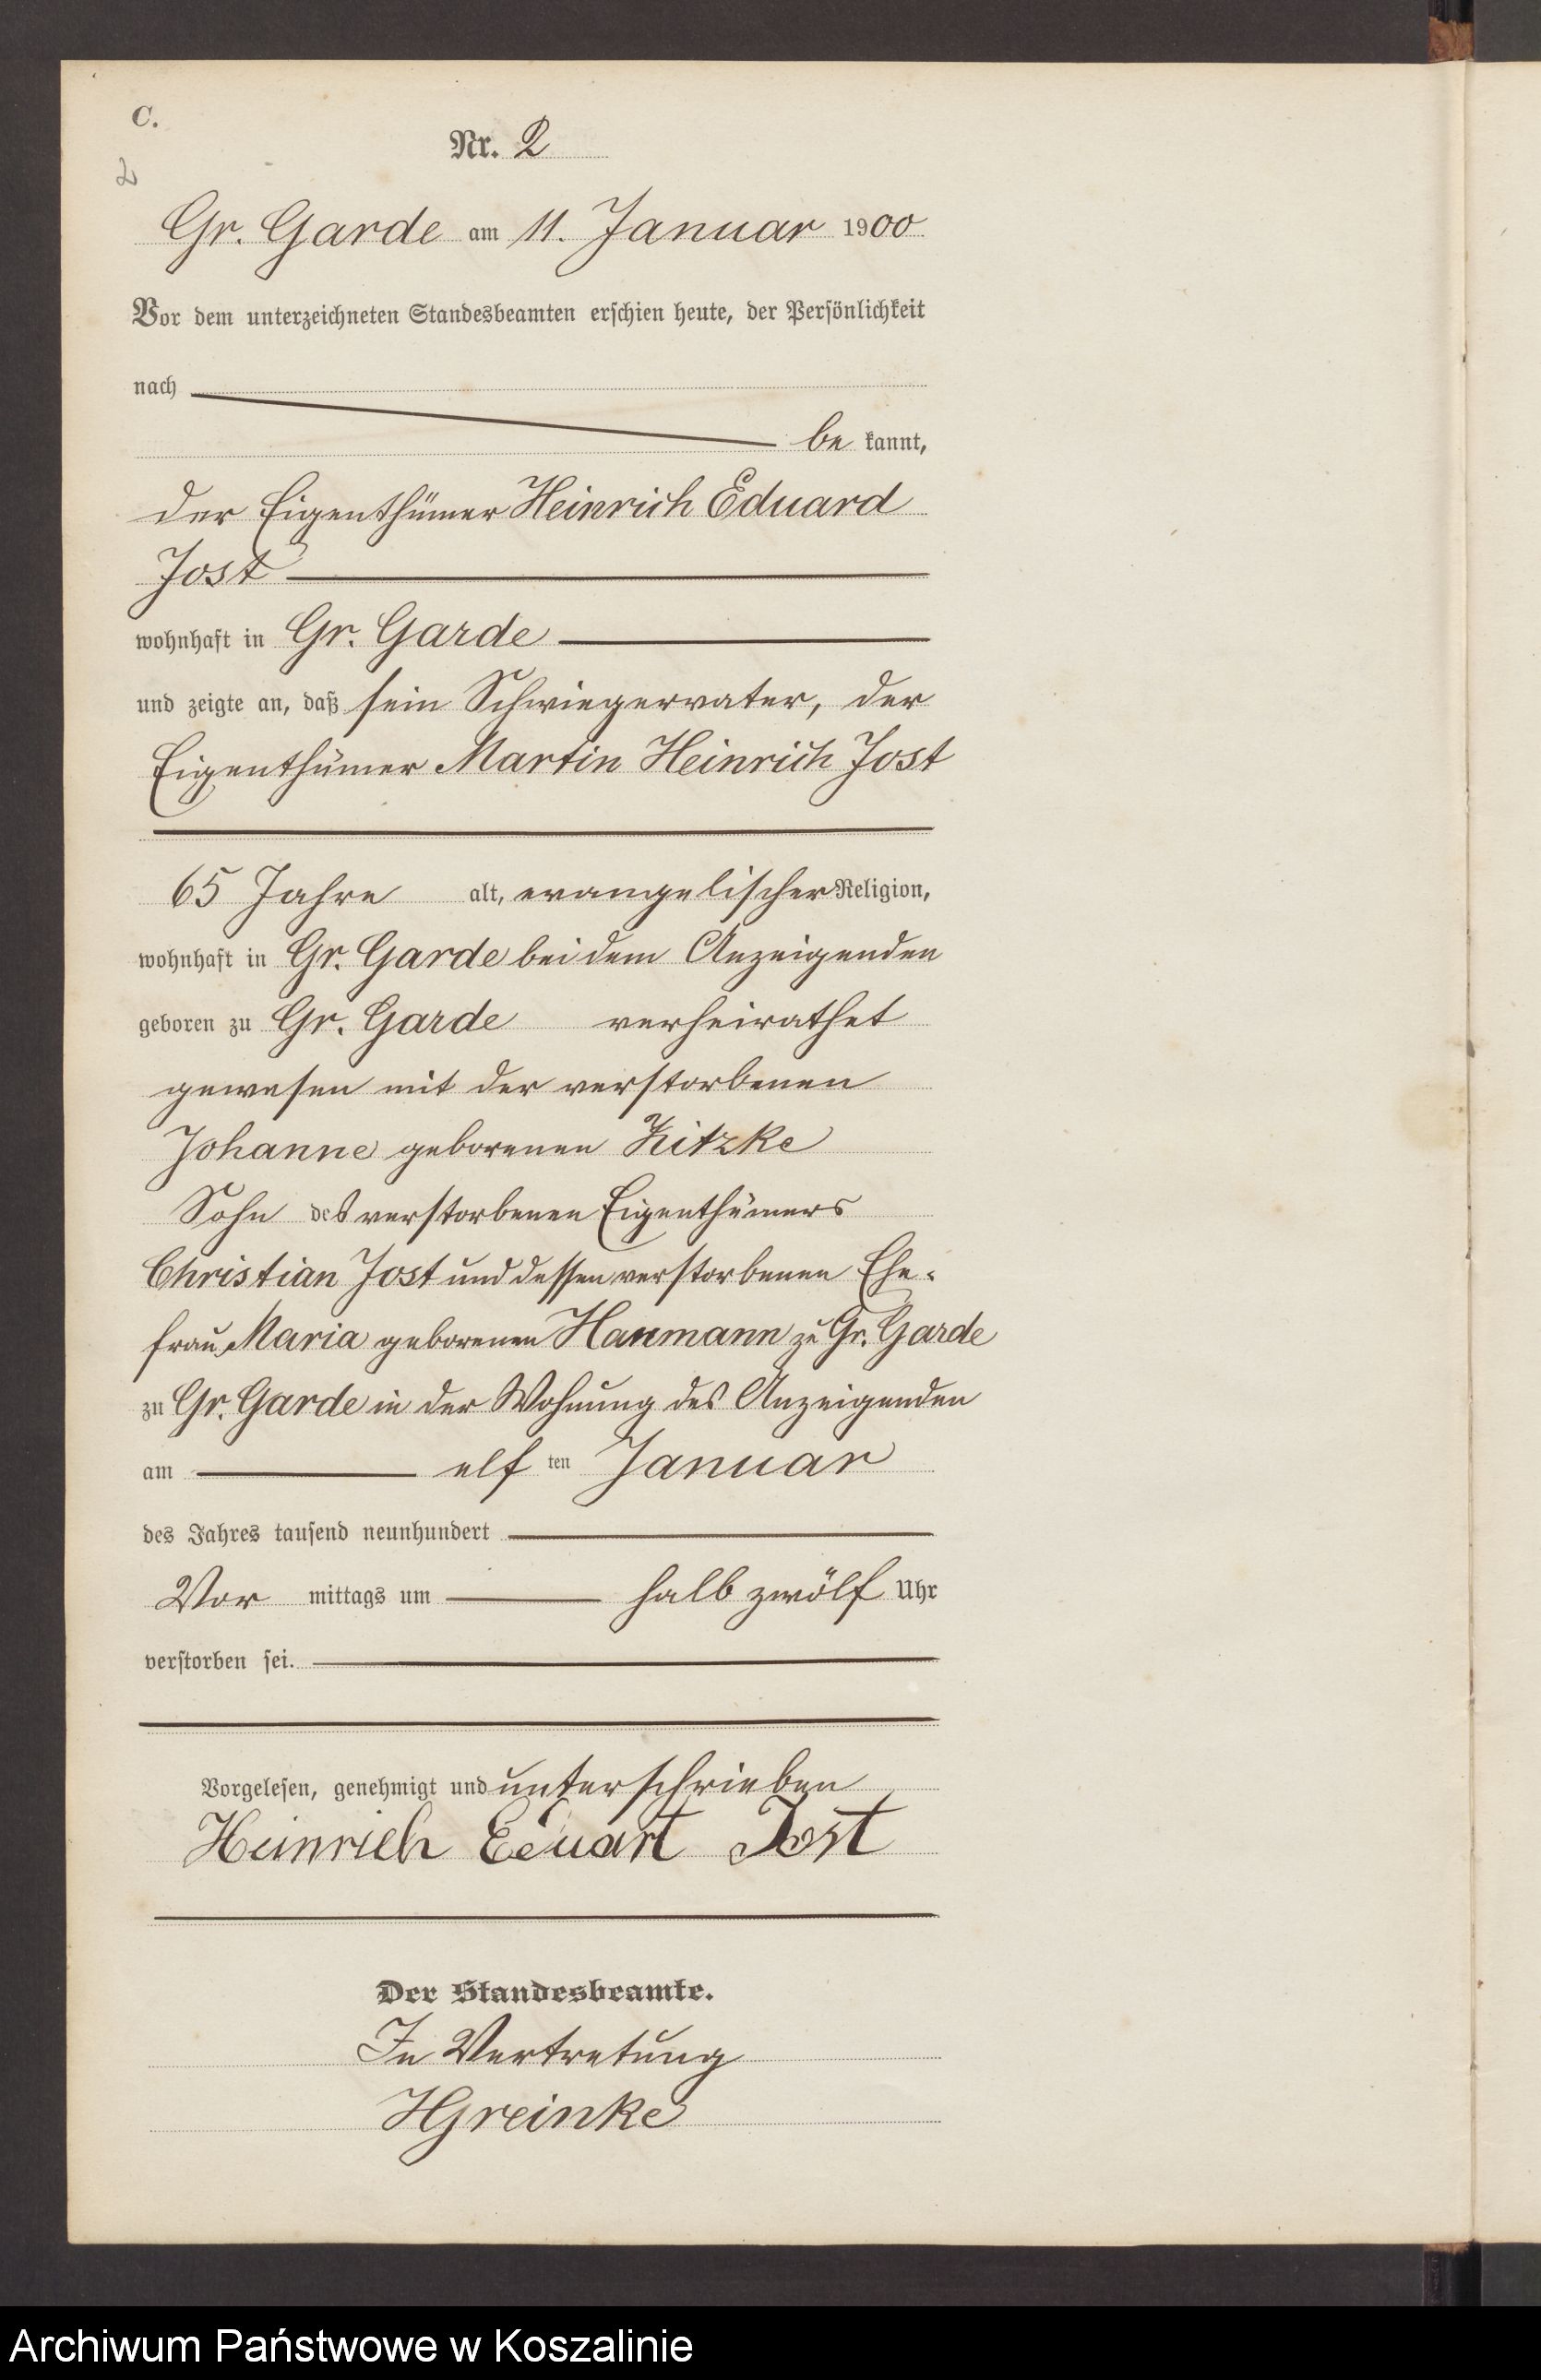 C.
Nr. 2
2
Gr. Garde am 11. Januar 1900
Vor dem unterzeichneten Standesbeamten erschien heute, der Persönlichkeit
nach
be kannt,
der Eigenthümer Heinrich Eduard
Jost
wohnhaft in Gr. Garde
und zeigte an, daß sein Schwiegervater, der
Eigenthümer Martin Heinrich Jost
65 Jahre alt, evangelischer Religion,
wohnhaft in Gr. Garde bei dem Anzeigenden
geboren zu Gr. Garde verheirathet
gewesen mit der verstorbenen
Johanne geborenen Kitzke
Sohn des verstorbenen Eigenthümers
Christian Jost und dessen verstorbenen Ehe-
frau Maria geborenen Hanmann zu Gr. Garde
zu Gr. Garde in der Wohnung des Anzeigenden
am elf ten Januar
des Jahres tausend neunhundert
Vor mittags um halb zwölf Uhr
verstorben sei.
Vorgelesen, genehmigt und unterschrieben
Heinrich Eduart Jost
Der Standesbeamte.
In Vertretung
HGreinke
Archiwum Państwowe w Koszalinie